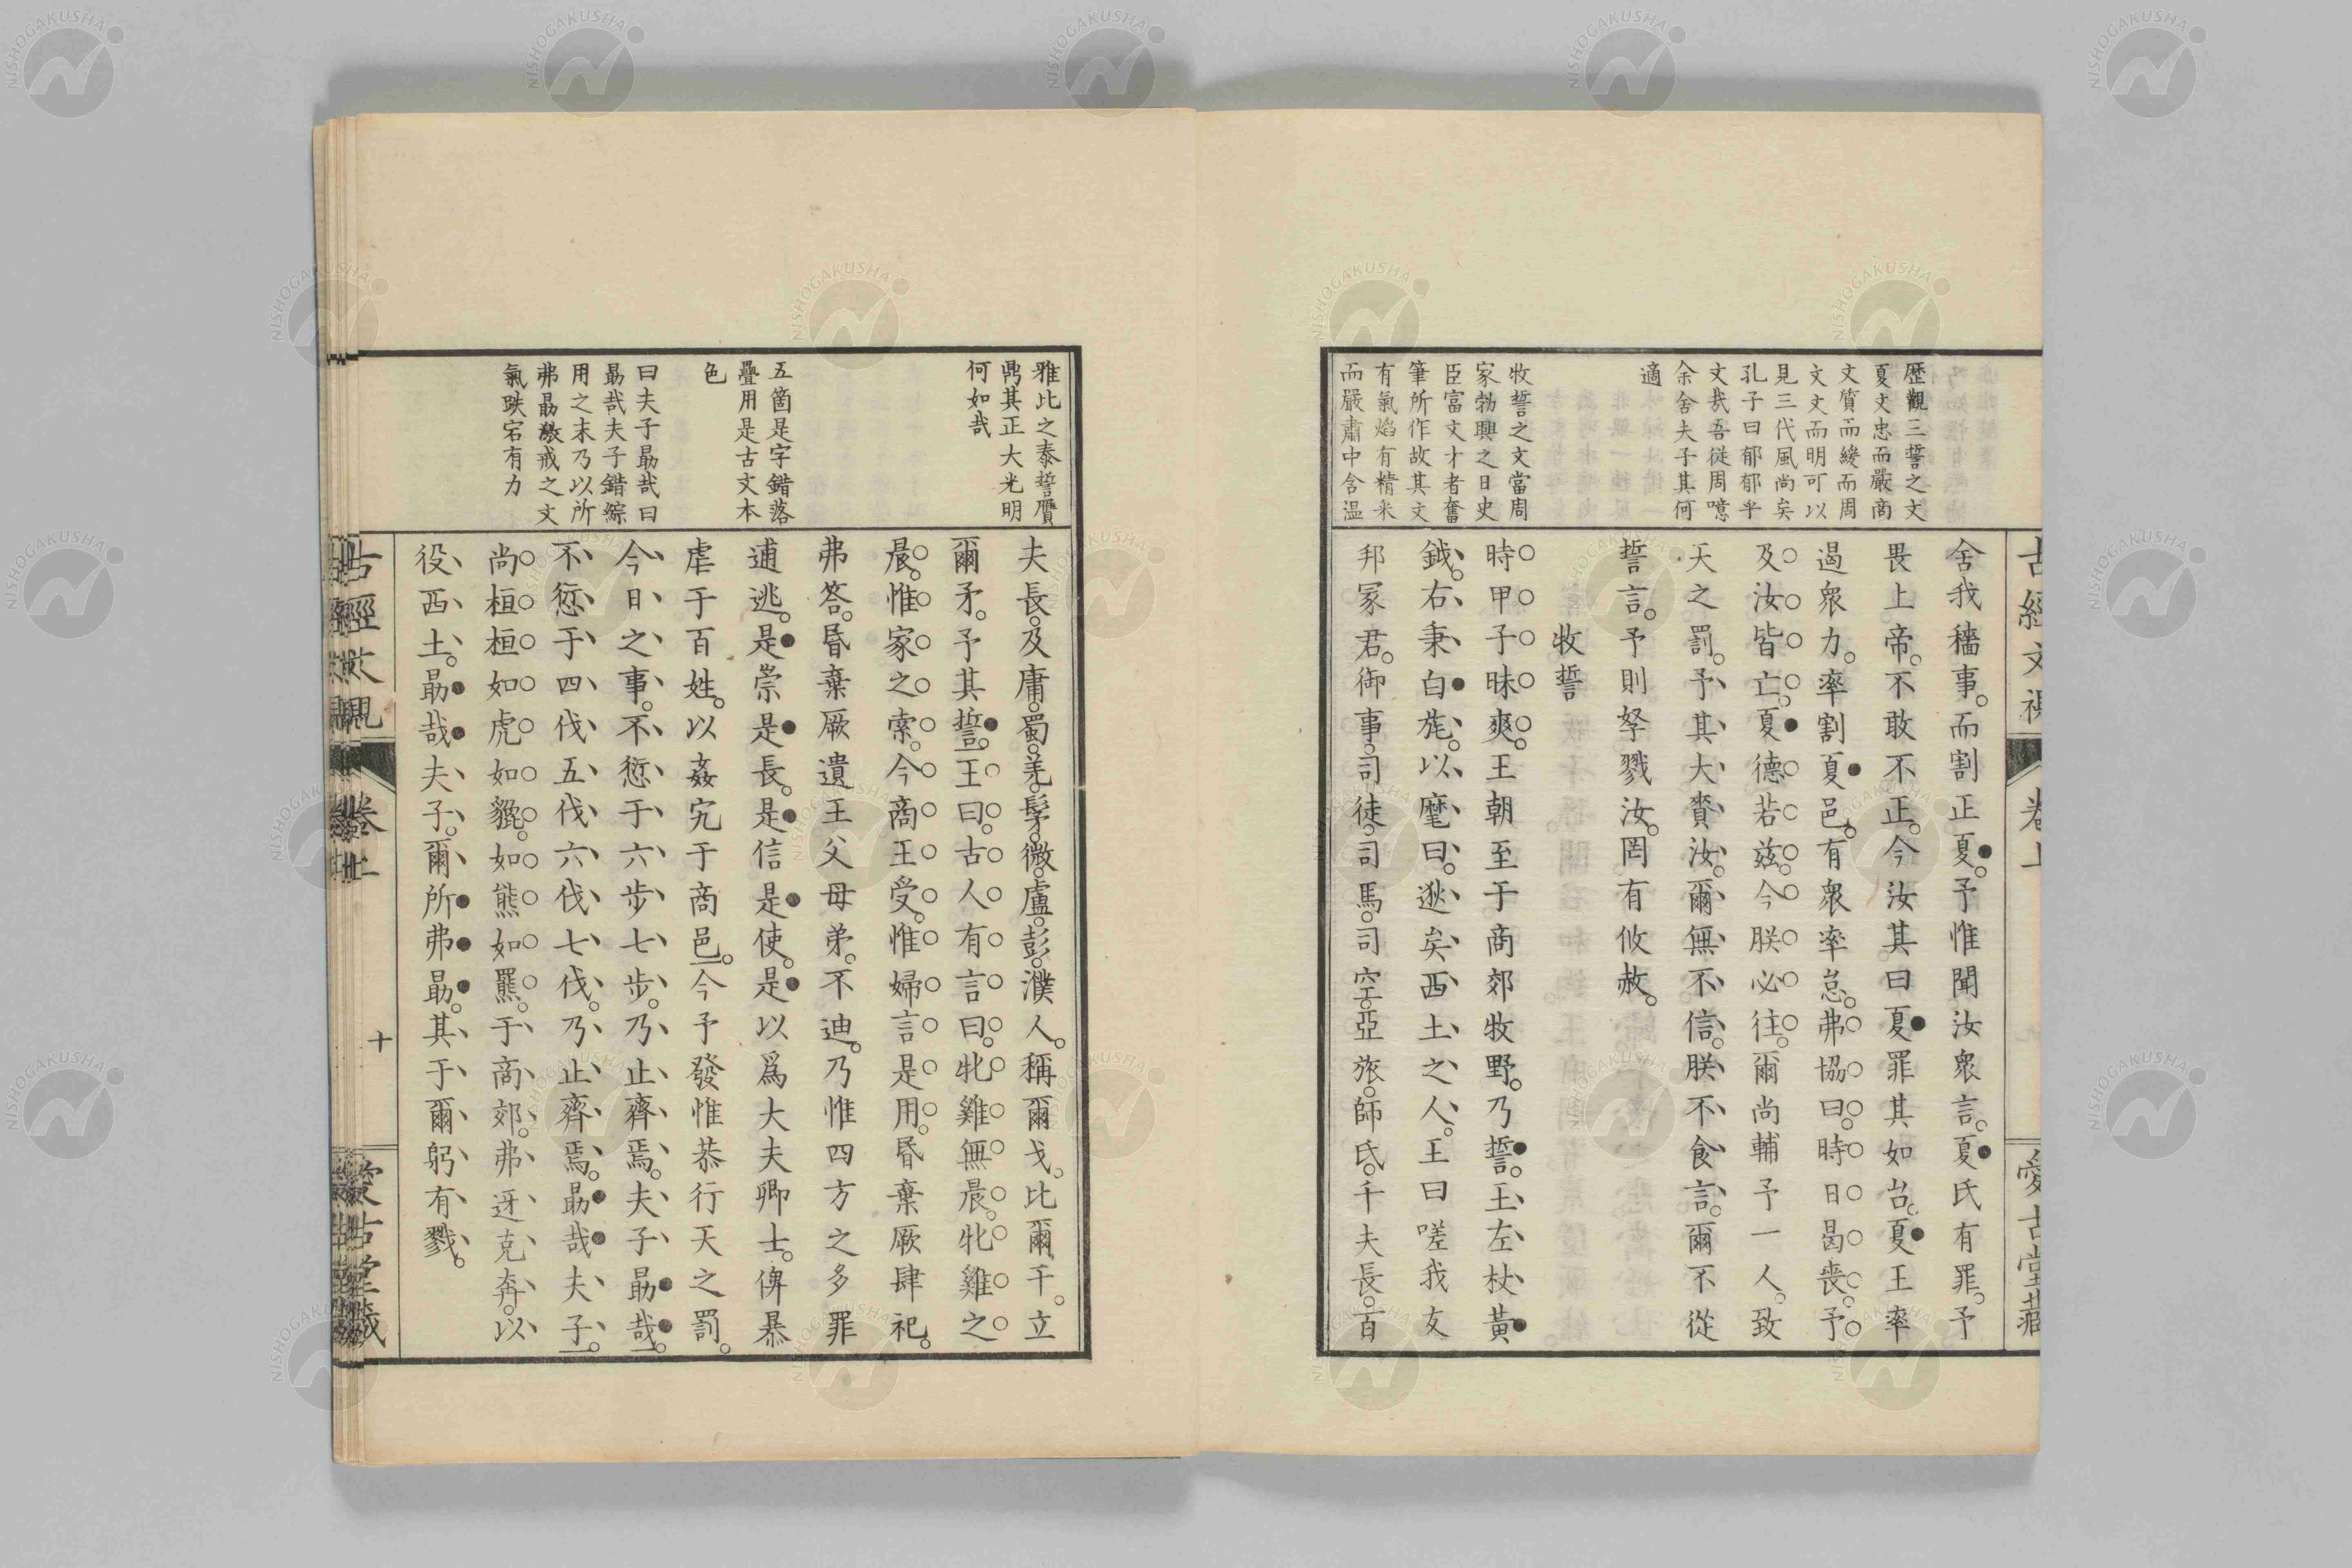 歴觀三誓之文
夏文忠而嚴商
文質而緩而周
文文而明可以
見三代風尚矣
孔子曰郁郁乎
文哉吾從周噫
余舍夫子其何
適
牧誓之文當周
家勃興之日史
臣富文才者奮
筆所作故其文
有氣焰有精采
而嚴肅中含溫
舍我穡事。而割正夏。予惟聞汝衆言。夏氏有罪。予
畏上帝。不敢不正。今汝其曰夏罪其如台。夏王率
遏衆力。率割夏邑。有衆率怠。弗協曰。時日曷喪。予
及汝皆亡。夏德若茲。今朕必往。爾尚輔予一人。致
天之罰。予其大賚汝。爾無不信。朕不食言。爾不從
誓言。予則孥戮汝。罔有攸赦。
牧誓
時甲子昧爽。王朝至于商郊牧野。乃誓。王左杖黃
鉞。右秉白旄。以麾曰。逖矣西土之人。王曰嗟我友
邦冢君。御事。司徒。司馬。司空。亞旅。師氏。千夫長。百
雅比之泰誓贋
鼎其正大光明
何如哉
五箇是字錯落
疊用是古文本
色
曰夫子勗哉曰
勗哉夫子錯綜
用之末乃以所
弗勗激戒之文
氣跌宕有力
夫長。及庸。蜀。羌。髳。微。盧。彭。濮人。稱爾戈。比爾干。立
爾矛。予其誓。王曰。古人有言曰。牝雞無晨。牝雞之
晨。惟家之索。今商王受。惟婦言是用。昏棄厥肆祀。
弗答。昏棄厥遺王父母弟。不迪。乃惟四方之多罪
逋逃。是崇是長。是信是使。是以爲大夫卿士。俾暴
虐于百姓。以姦宄于商邑。今予發惟恭行天之罰。
今日之事。不愆于六步七步。乃止齊焉。夫子勗哉。
不愆于四伐五伐六伐七伐。乃止齊焉。勗哉夫子。
尚桓桓如虎如貔。如熊如羆。于商郊。弗迓克奔。以
役西土。勗哉夫子。爾所弗勗。其于爾躬有戮。
古經文視
卷上
十
愛古堂藏
NISHOGAKUSHA